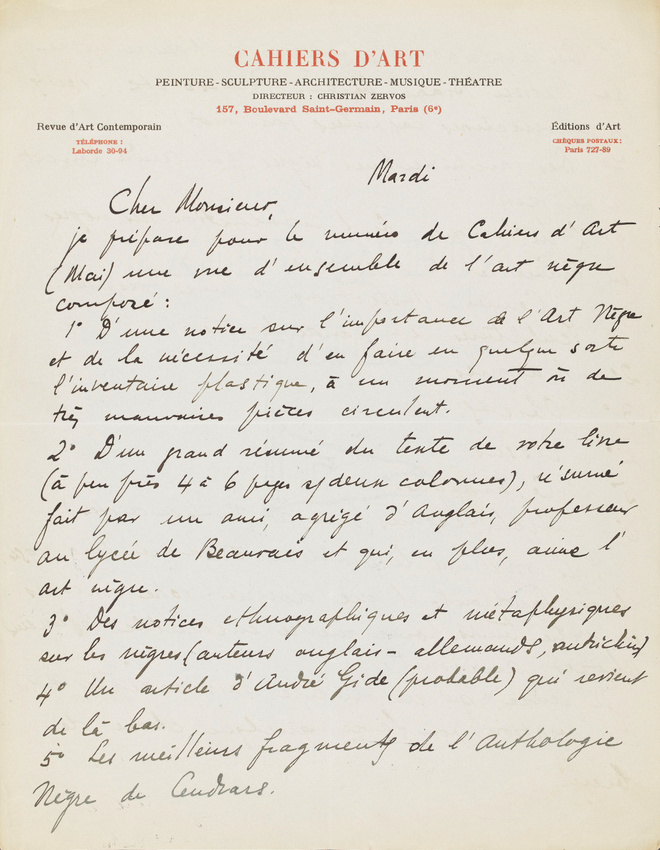 CAHIERS D'ART
PEINTURE - SCULPTURE - ARCHITECTURE - MUSIQUE - THÉATRE
DIRECTEUR : CHRISTIAN ZERVOS
157, Boulevard Saint-Germain, Paris (6e)
Revue d'Art Contemporain
TÉLÉPHONE :
Laborde 30-94
Éditions d'Art
CHÈQUES POSTAUX :
Paris 727-89
Mardi
Cher Monsieur,
je prépare pour le numéro de Cahiers d'Art
(Mai) une vue d'ensemble de l'art nègre
composé :
1° D'une notice sur l'importance de l'Art Nègre
et de la nécessité d'en faire en quelque sorte
l'inventaire plastique, à un moment où de
très mauvaises pièces circulent.
2° D'un grand résumé du texte de votre livre
(à peu près 4 à 6 pages s/ deux colonnes), résumé
fait par un ami, agrégé d'Anglais, professeur
au lycée de Beauvais et qui, en plus, aime l'
art nègre.
3° Des notices ethnographiques et métaphysiques
sur les nègres (auteurs anglais - allemands, autrichiens)
4° Un article d'André Gide (probable) qui revient
de là bas.
5° Les meilleurs fragments de l'Anthologie
Nègre de Cendrars.